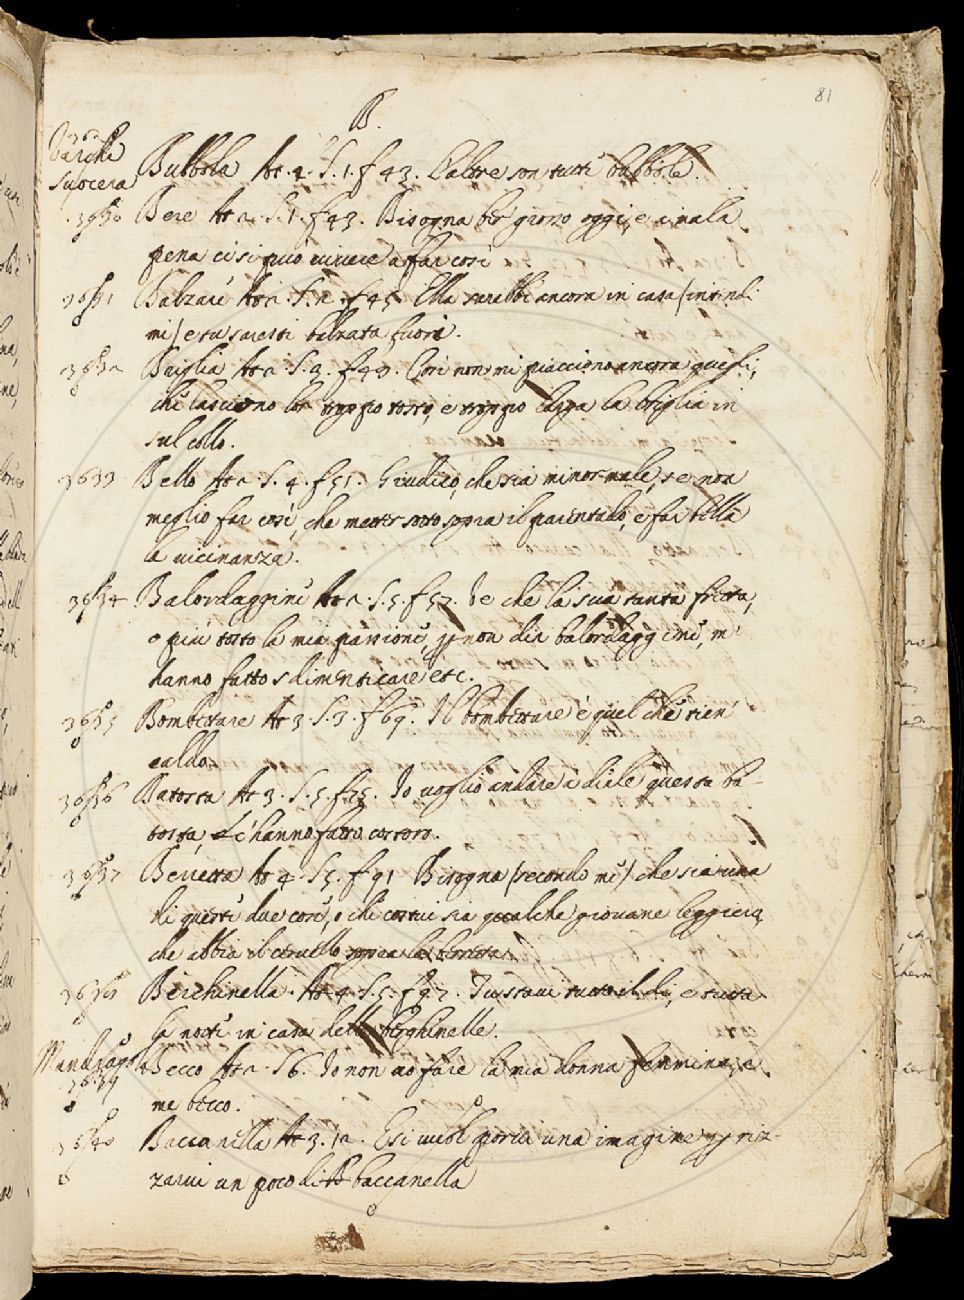 81
B.
Varchi
Suocera
Bubbola At. 2. S. 1. f 43. L'altre son tutti bubbole.
Bere At 2. S. 1. f 43. Bisogna ber grosso oggi, e a mala
pena ci si può vivere a far così
3631 Balzare At 2. S. 2. f 45. Ella sarebbe ancora in casa (intendi
mi) e tu saresti balzata fuori.
3632 Briglia At 2. S. 3. f 49. Così non mi piacciono ancora quegli,
che lasciono lor troppo, e troppo la briglia in
sul collo.
3633 Bello At 2 S. 4. f 51. Giudico, che sia minor male, se non
meglio far così, che metter sotto sopra il parentado, e far bella
la vicinanza.
3634 Balordaggini At 2. S. 5. f 57. Se che la sua tanta fretta,
o più tosto la mia passione, p non dir balordaggine, m'
hanno fatto sdimenticare etc.
3635 Bomberare At 3. S. 3. f 69. Il bomberare è quel che tien
caldo.
3636 Batosta At 3. S. 5. f 75. Io voglio andare a dirle questa ba-
tosta, ch'hanno fatto costoro.
3637 Berretta At 4. S 5. f 91 Bisogna (secondo me) che sia una
di queste due cose, o che costui sia qualche giovane leggieri,
che abbia il cervello sopra la berretta.
3638 Berghinella. At 4. S. 5. f 97. Tu stavi tutto il dì, e tutta
la notte in casa delle berghinelle.
Mandrag.
3639 Becco At 2. S 6. Io non vo fare la mia donna femmina, e
me becco.
3640 Baccanella At 3. 12. E si vuol porvi una imagine p riz-
zarvi un poco di baccanella